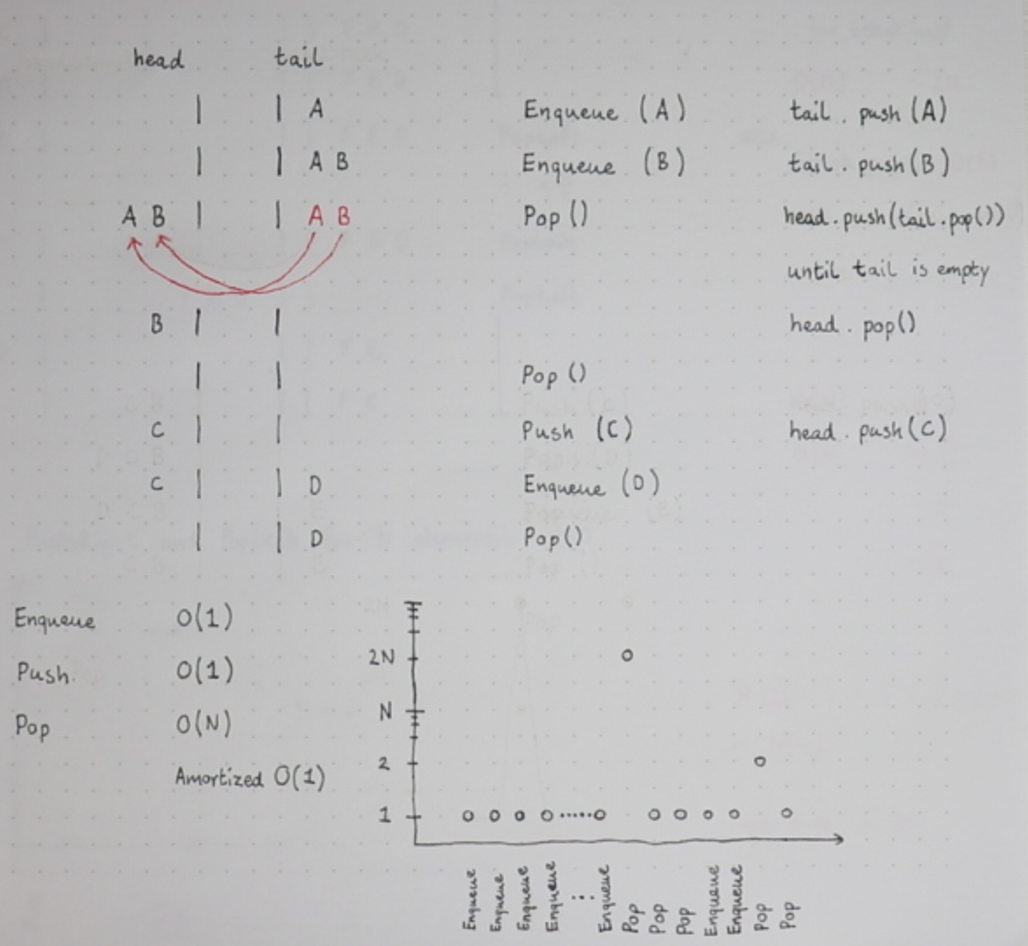 head tail
| | A Enqueue (A) tail. push (A)
| | A B Enqueue (B) tail. push (B)
A B | | A B Pop () head. push(tail.pop())
until tail is empty
B | | head. pop()
| | Pop ()
C | | Push (C) head. push (C)
C | | D Enqueue (D)
| | D Pop()
Enqueue O(1)
Push O(1)
Pop O(N)
Amortized O(1)
2N
N
2
1
Enqueue
Enqueue
Enqueue
Enqueue
...
Enqueue
Pop
Pop
Pop
Enqueue
Enqueue
Pop
Pop